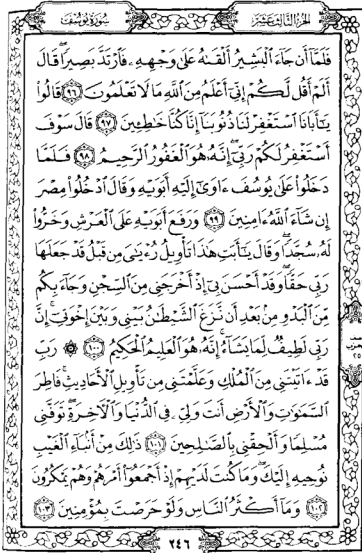 سورة يوسف
الجزء الثالث عشر
فَلَمَّآ أَن جَآءَ ٱلْبَشِيرُ أَلْقَىٰهُ عَلَىٰ وَجْهِهِۦ فَٱرْتَدَّ بَصِيرًا ۖ قَالَ
أَلَمْ أَقُل لَّكُمْ إِنِّىٓ أَعْلَمُ مِنَ ٱللَّهِ مَا لَا تَعْلَمُونَ ٩٦ قَالُوا۟
يَٰٓأَبَانَا ٱسْتَغْفِرْ لَنَا ذُنُوبَنَآ إِنَّا كُنَّا خَٰطِـِٔينَ ٩٧ قَالَ سَوْفَ
أَسْتَغْفِرُ لَكُمْ رَبِّىٓ ۖ إِنَّهُۥ هُوَ ٱلْغَفُورُ ٱلرَّحِيمُ ٩٨ فَلَمَّا
دَخَلُوا۟ عَلَىٰ يُوسُفَ ءَاوَىٰٓ إِلَيْهِ أَبَوَيْهِ وَقَالَ ٱدْخُلُوا۟ مِصْرَ
إِن شَآءَ ٱللَّهُ ءَامِنِينَ ٩٩ وَرَفَعَ أَبَوَيْهِ عَلَى ٱلْعَرْشِ وَخَرُّوا۟
لَهُۥ سُجَّدًا ۖ وَقَالَ يَٰٓأَبَتِ هَٰذَا تَأْوِيلُ رُءْيَٰىَ مِن قَبْلُ قَدْ جَعَلَهَا
رَبِّى حَقًّا ۖ وَقَدْ أَحْسَنَ بِىٓ إِذْ أَخْرَجَنِى مِنَ ٱلسِّجْنِ وَجَآءَ بِكُم
مِّنَ ٱلْبَدْوِ مِنۢ بَعْدِ أَن نَّزَغَ ٱلشَّيْطَٰنُ بَيْنِى وَبَيْنَ إِخْوَتِىٓ ۚ إِنَّ
رَبِّى لَطِيفٌ لِّمَا يَشَآءُ ۚ إِنَّهُۥ هُوَ ٱلْعَلِيمُ ٱلْحَكِيمُ ١٠٠ ۞ رَبِّ
قَدْ ءَاتَيْتَنِى مِنَ ٱلْمُلْكِ وَعَلَّمْتَنِى مِن تَأْوِيلِ ٱلْأَحَادِيثِ ۚ فَاطِرَ
ٱلسَّمَٰوَٰتِ وَٱلْأَرْضِ أَنتَ وَلِىِّۦ فِى ٱلدُّنْيَا وَٱلْءَاخِرَةِ ۖ تَوَفَّنِى
مُسْلِمًا وَأَلْحِقْنِى بِٱلصَّٰلِحِينَ ١٠١ ذَٰلِكَ مِنْ أَنۢبَآءِ ٱلْغَيْبِ
نُوحِيهِ إِلَيْكَ ۖ وَمَا كُنتَ لَدَيْهِمْ إِذْ أَجْمَعُوٓا۟ أَمْرَهُمْ وَهُمْ يَمْكُرُونَ
١٠٢ وَمَآ أَكْثَرُ ٱلنَّاسِ وَلَوْ حَرَصْتَ بِمُؤْمِنِينَ ١٠٣
٢٤٦